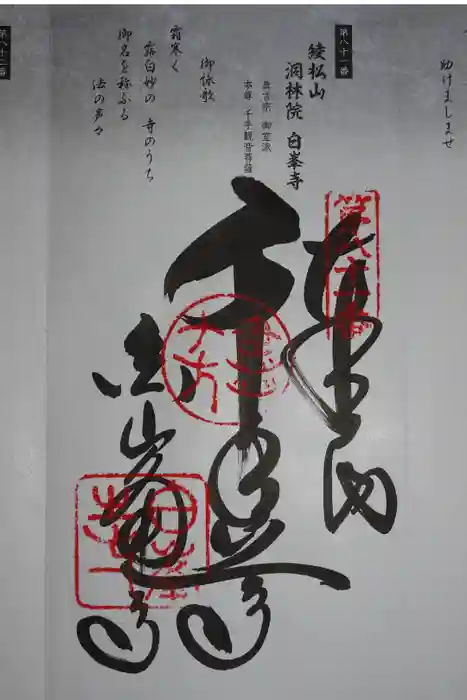 助けましませ
第八十一番
綾松山
洞林院 白峯寺
真言宗 御室派
本尊 千手観音菩薩
御詠歌
霜寒く
露白妙の 寺のうち
御名を称ふる
法の声々
第八十二番
第八十一番
奉
千手
白峯寺